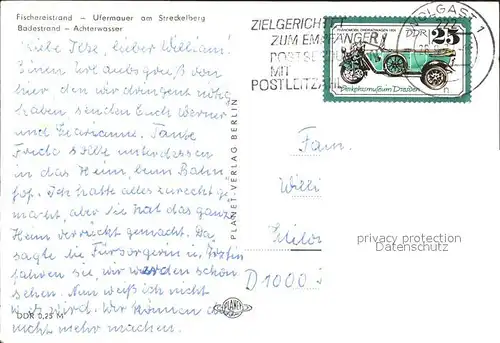 Fischereistrand - Ufermauer am Streckelberg
Badestrand - Achterwasser
Liebe Ilse, lieber William!
Einen Urlaubsgruß von
hier den wir dringend nötig
haben senden Euch Werner
und Marianne. Tante
Frieda sollte unterdessen
in das Heim, beim Bahn-
hof. Ich hatte alles zurecht ge-
macht, aber sie hat das ganze
Heim verrückt gemacht. Da
sagte die Fürsorgerin u. Ärztin
fahren sie, wir werden schon
sehen. Nun weiß ich nicht
was wird. Wir können
nicht mehr machen.
DDR 0,25 M
PLANET-VERLAG BERLIN
PLANET
ZIELGERICHTET
ZUM EMPFÄNGER
POSTSE
MIT
POSTLEITZAHL
WOLGAST 1
222
DDR 25
Verkehrsmuseum Dresden
Fam.
Willi
D 1000
privacy protection
Datenschutz